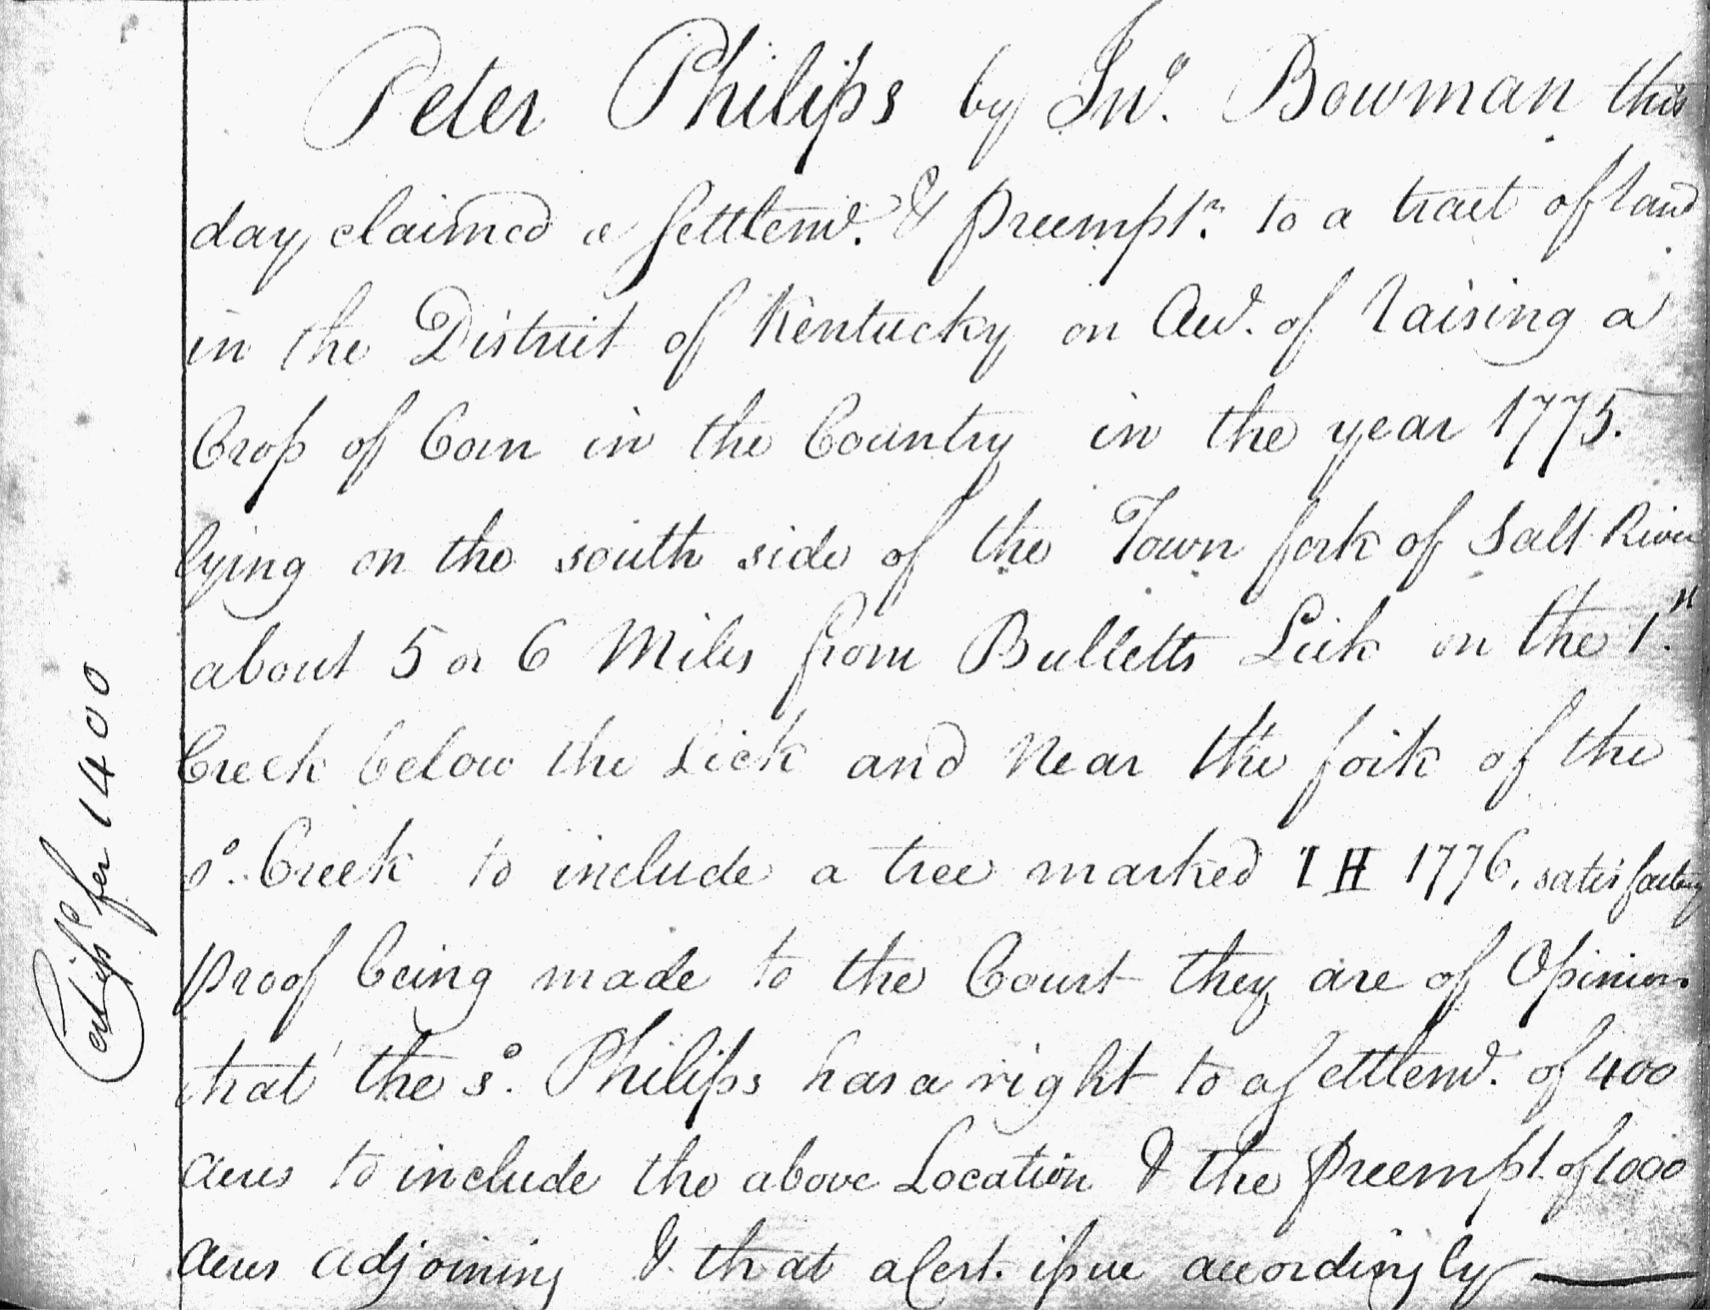 Peter Philips by Jnº. Bowman this
day claimed a Settlemt. & preemptn. to a tract of land
in the District of Kentucky on Act. of raising a
Crop of Corn in the Country in the year 1775.
lying on the south side of the Town fork of Salt River
about 5 or 6 Miles from Bulletts Lick on the 1st.
Creek below the Lick and near the fork of the
sd. Creek to include a tree marked I H 1776. satisfactory
proof being made to the Court they are of Opinion
that the sd. Philips has a right to a Settlemt. of 400
acres to include the above Location & the preempt. of 1000
acres adjoining & that a Cert. issue accordingly
Certifd. for 1400